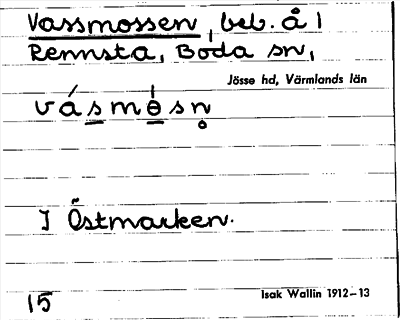 Vassmossen, beb. å 1
Rennsta, Boda sn,
Jösse hd, Värmlands län
I Östmarken.
15
Isak Wallin 1912–13